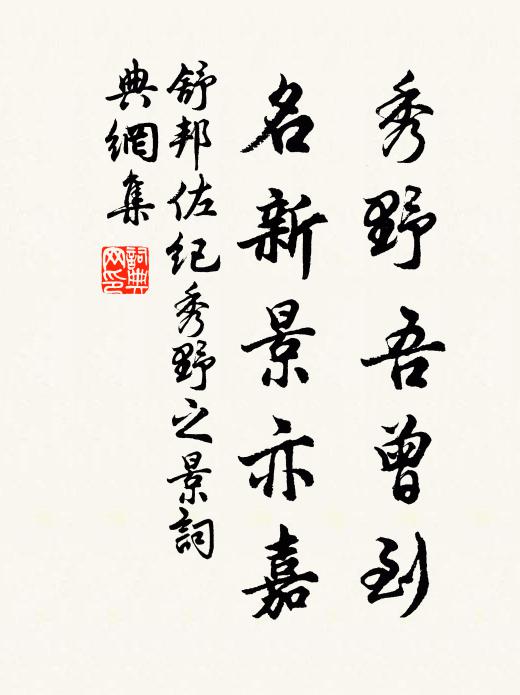 秀野吾曾到
名新景亦嘉
舒邦佐纪秀野之景詞
典網集
詞典
网印